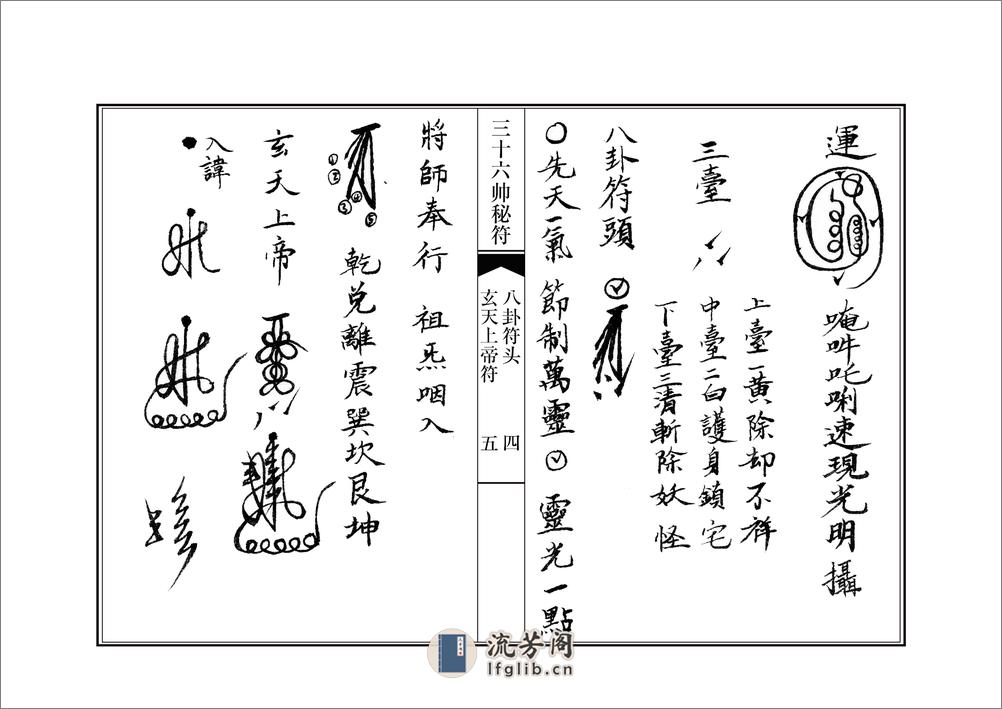 運
唵吽吒唎速現光明攝
三臺
上臺一黃除却不祥
中臺二白護身鎮宅
下臺三清斬除妖怪
八卦符頭
〇先天一氣 節制萬靈 靈光一點
三十六帅秘符
八卦符头
玄天上帝符
四
五
將師奉行 祖炁咽入
①
②
③
④
⑤
乾兌離震巽坎艮坤
玄天上帝
入諱
流芳阁
lfglib.cn